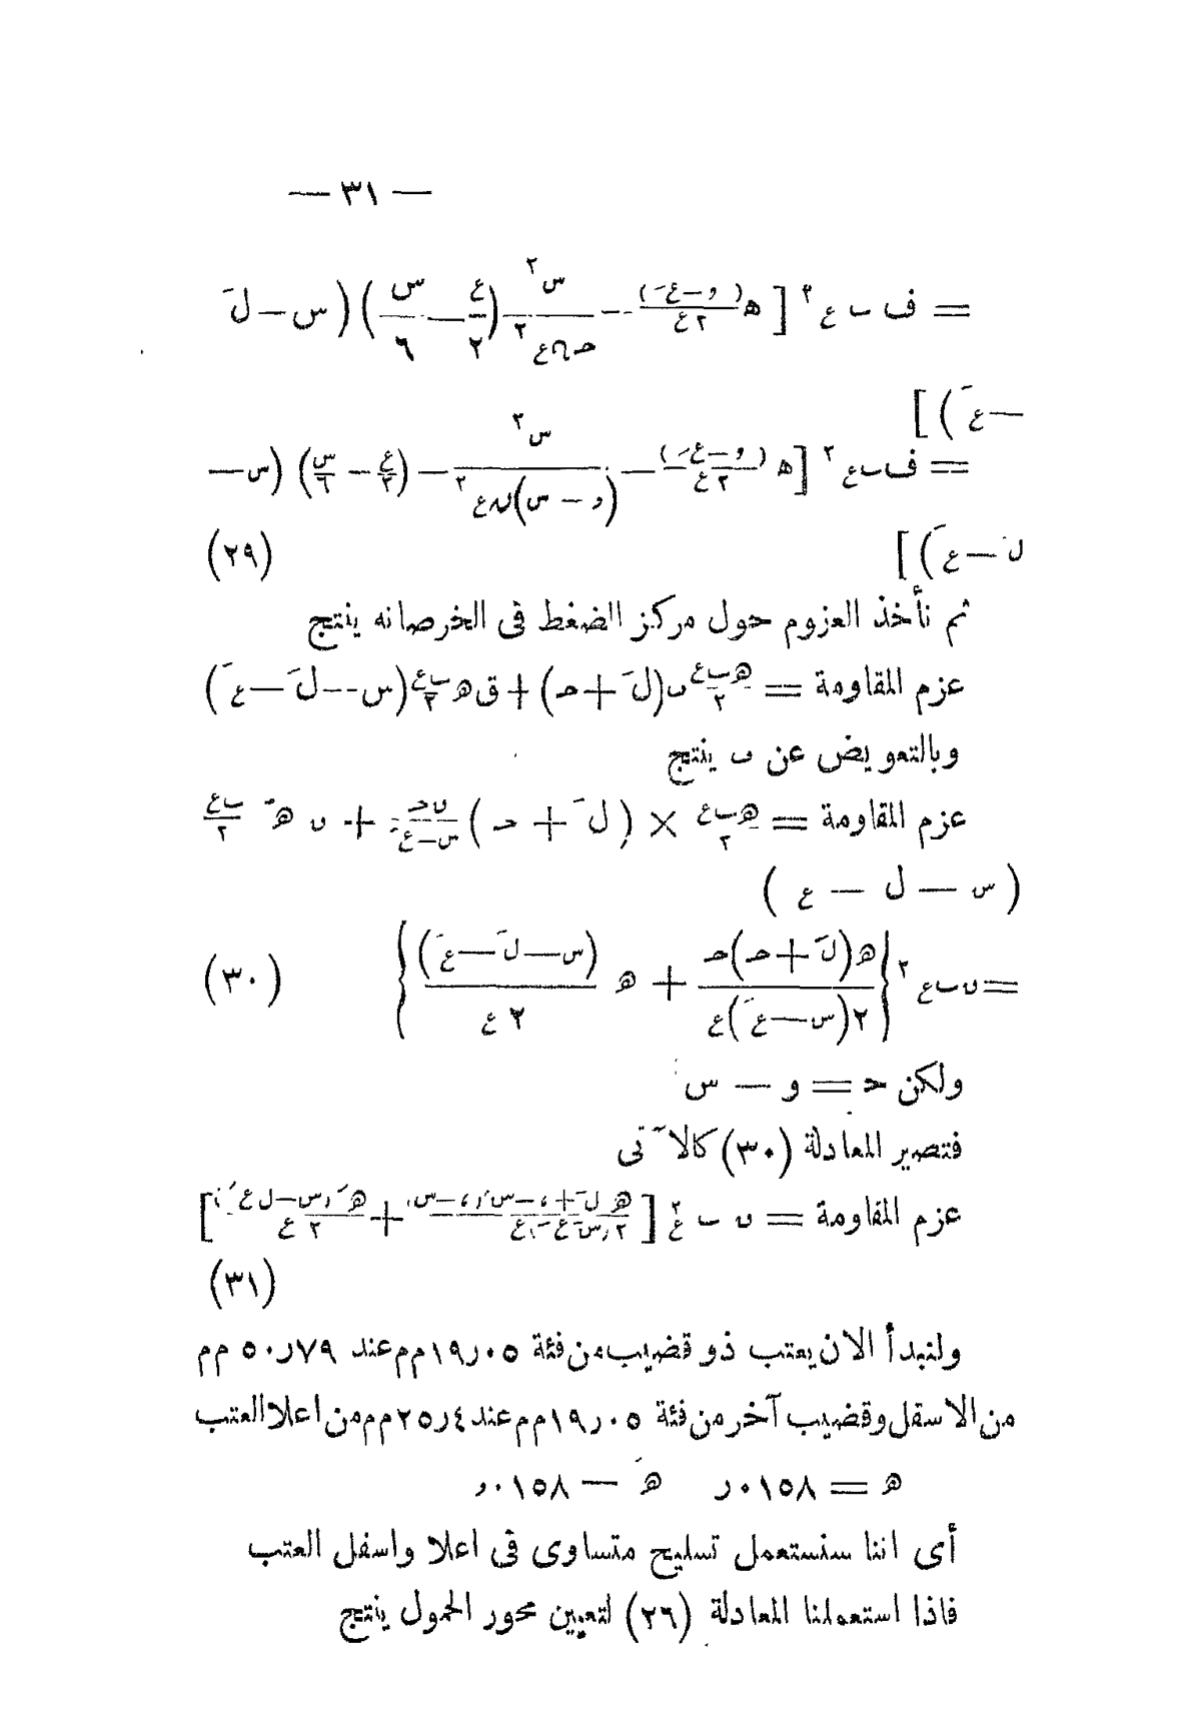 — ٣١ —
= ف ٮ ع ٢ [ ه (و-عَ)/٢ع - س ٢/حںع ٢ (ع/٢ - س/٦) (س - لَ
- عَ) ]
= ف ٮ ع ٢ [ ه (و-عَ)/٢ع - س ٢/(و - س)ںع ٢ - (ع/٢ - س/٦) (س -
لَ - عَ) ] (٢٩)
ثم نأخذ العزوم حول مركز الضغط فى الخرصانه ينتج
عزم المقاومة = هٮع/٢ ں(لَ + حـ) + ق ه ٮع/٢ (س - لَ - عَ)
وبالتعويض عن ں ينتج
عزم المقاومة = هٮع/٢ × (لَ + حـ) ںحـ/س-عَ + ں هَ ٮع/٢
(س - ل - ع)
= ںٮع ٢ {ه(لَ + حـ)حـ/٢(س - عَ)ع + ه (س - لَ - عَ)/٢ع} (٣٠)
ولكن حـ = و - س
فتصير المعادلة (٣٠) كالآتى
عزم المقاومة = ں ٮ ع ٢ [
(٣١)
ولنبدأ الان بعتب ذو قضيب من فئة ١٩ر٠٥ مم عند ٥٠ر٧٩ مم
من الاسفل وقضيب آخر من فئة ١٩ر٠٥ مم عند ٢٥ر٤ مم من اعلا العتب
ه = ٠١٥٨ر هَ — ٠١٥٨ر
أى اننا سنستعمل تسليح متساوى فى اعلا واسفل العتب
فاذا استعملنا المعادلة (٢٦) لتعيين محور الخمول ينتج